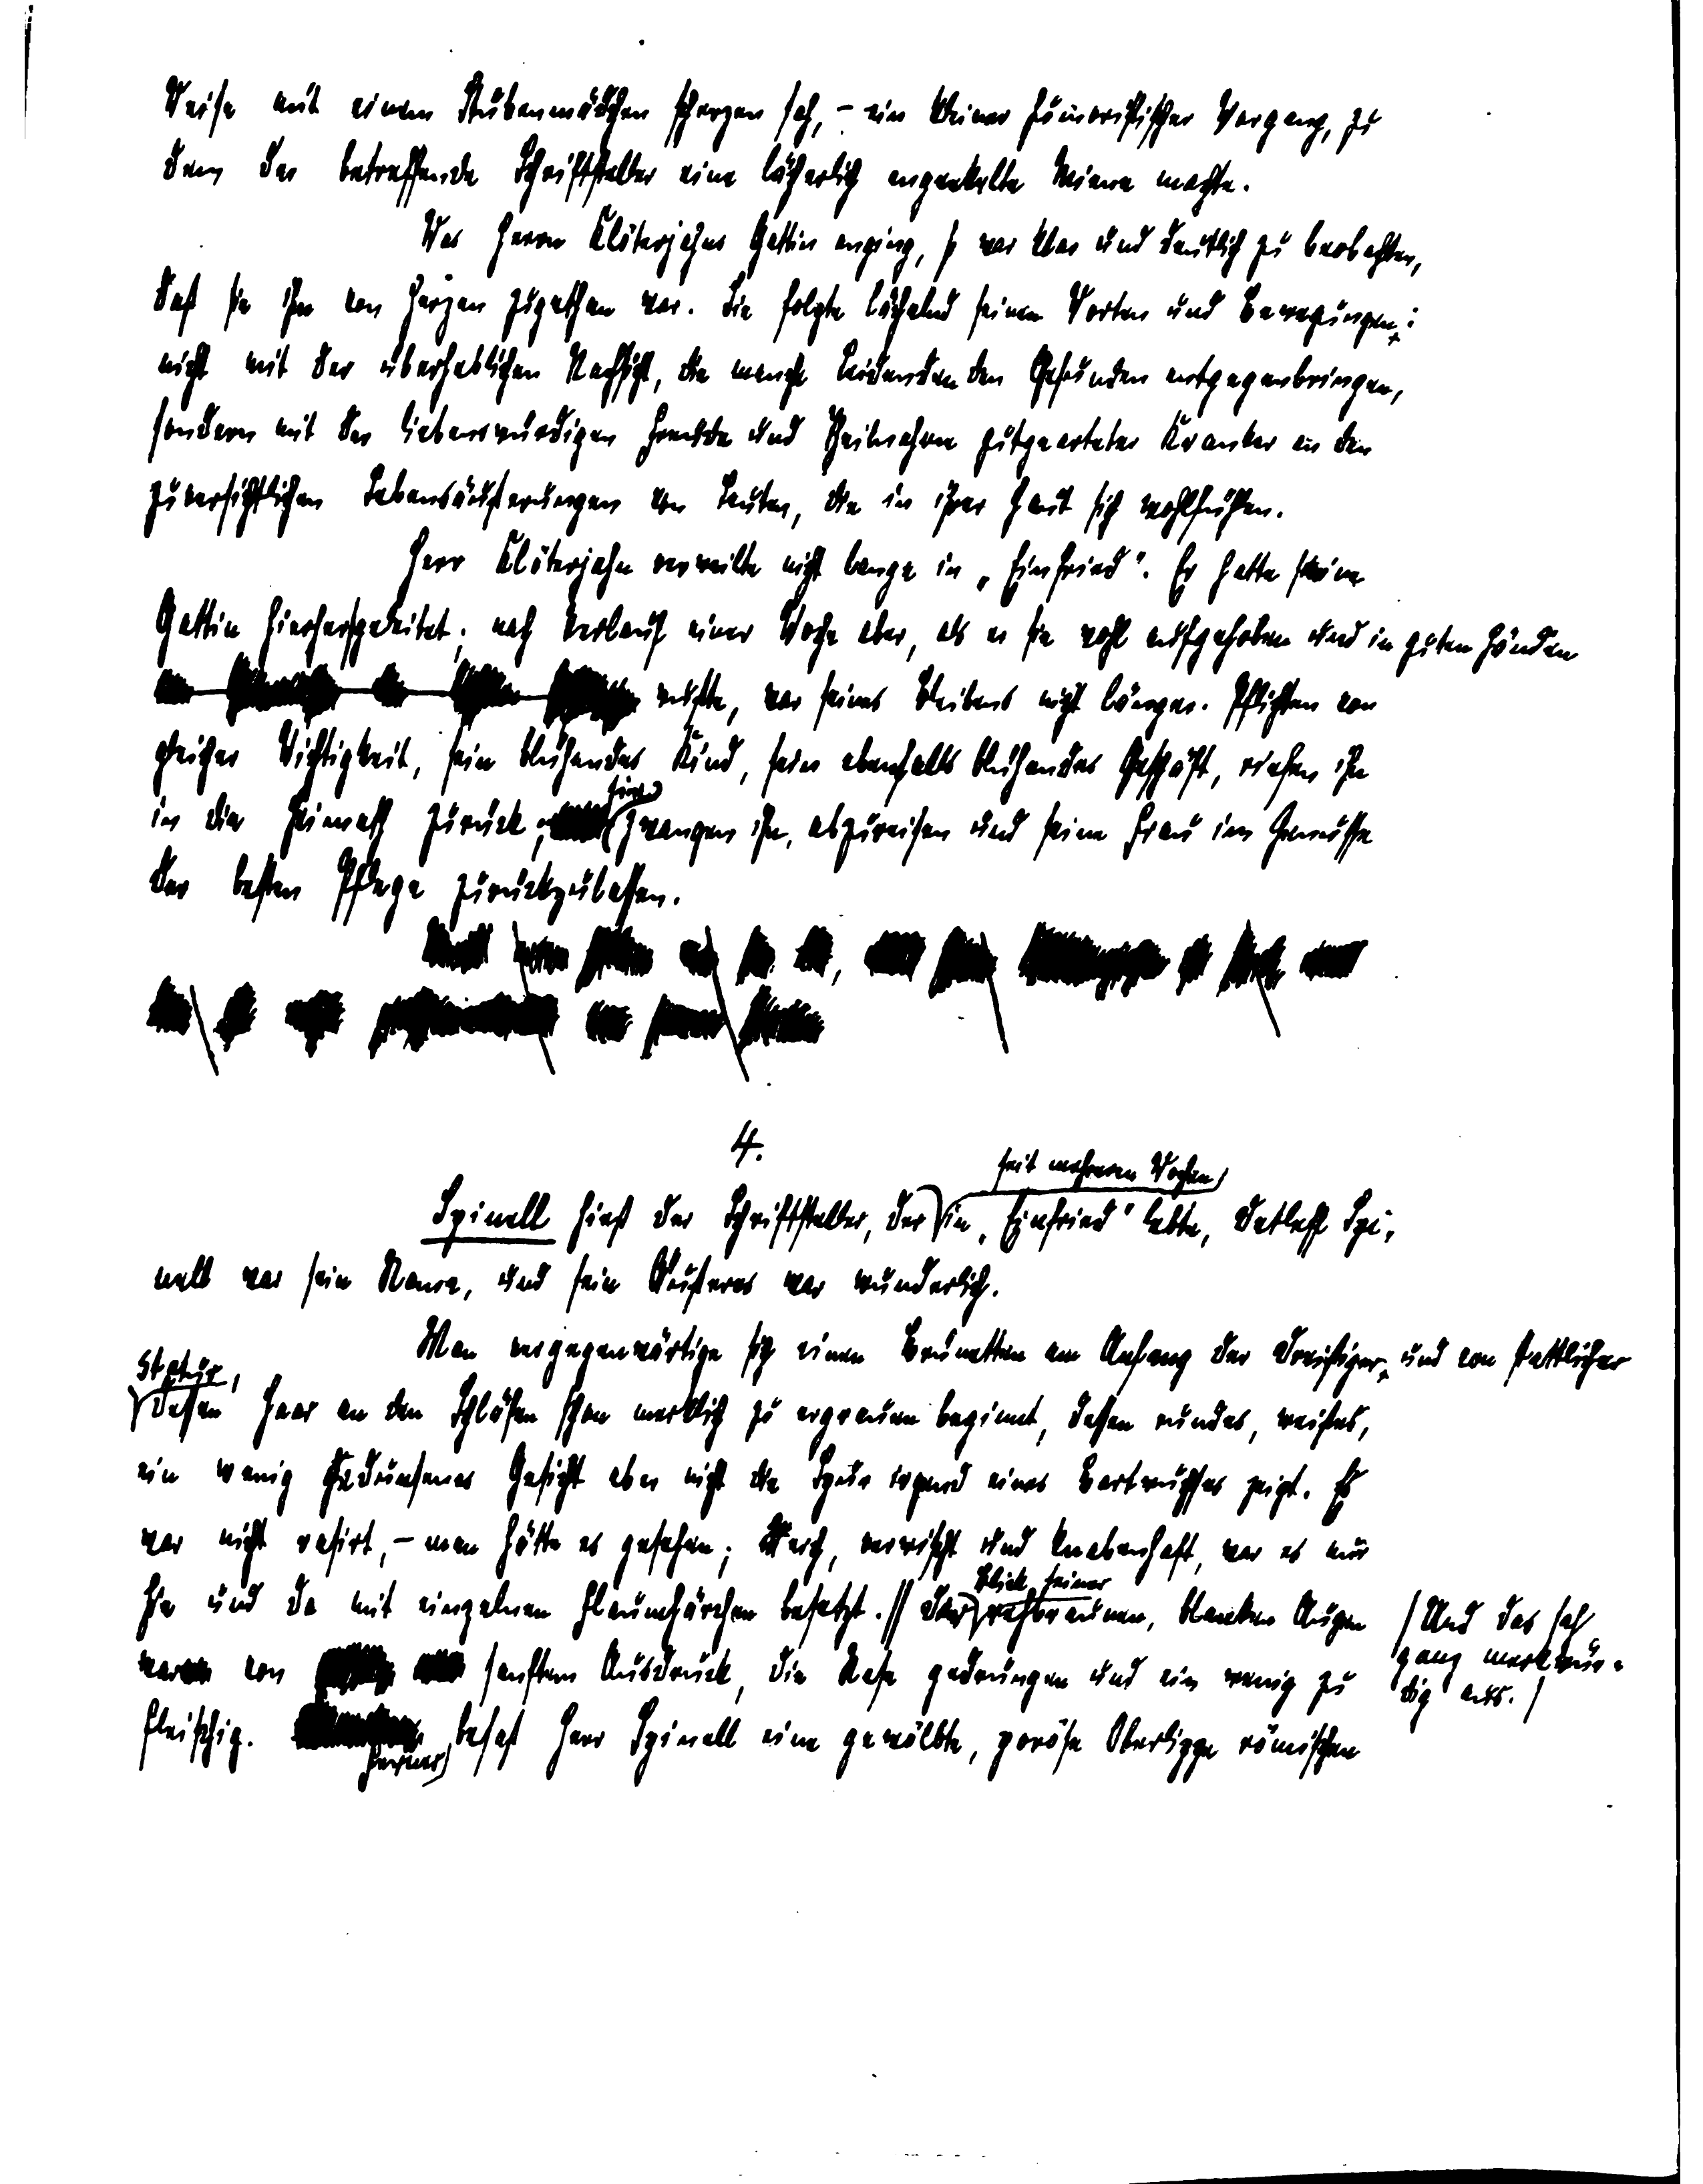 Weise mit einem Stubenmädchen scherzen sah, – ein kleiner humoristischer Vorgang, zu
dem der betreffende Schriftsteller eine lächerlich angeekelte Miene machte.
Was Herrn Klöterjahns Gattin anging, so war klar und deutlich zu beobachten,
daß sie ihm von Herzen zugethan war. Sie folgte lächelnd seinen Worten und Bewegungen;
nicht mit der überheblichen Nachsicht, die manche Leidenden den Gesunden entgegenbringen,
sondern mit der liebenswürdigen Freude und Theilnahme gutgearteter Kranker an den
zuversichtlichen Lebensäußerungen von Leuten, die in ihrer Haut sich wohlfühlen.
Herr Klöterjahn verweilte nicht lange in „Einfried". Er hatte seine
Gattin hierhergeleitet; nach Verlauf einer Woche aber, als er sie wohl aufgehoben und in guten Händen
wußte, war seines Bleibens nicht länger. Pflichten von
gleicher Wichtigkeit, sein blühendes Kind, sein ebenfalls blühendes Geschäft, riefen ihn
in die Heimath zurück; sie zwangen ihn, abzureisen und seine Frau im Genusse
der besten Pflege zurückzulassen.
4.
seit mehreren Wochen
Spinell hieß der Schriftsteller, der in „Einfried" lebte, Detleff Spi-
nell war sein Name, und sein Äußeres war wunderlich.
Man vergegenwärtige sich einen Brünetten am Anfang der Dreißiger und von stattlicher
Statur,
dessen Haar an den Schläfen schon merklich zu ergrauen beginnt, dessen rundes, weißes,
ein wenig gedunsenes Gesicht aber nicht die Spur irgend eines Bartwuchses zeigt. Es
war nicht rasirt, – man hätte es gesehen; weich, verwischt und knabenhaft, war es nur
hie und da mit einzelnen Flaumhärchen besetzt. // Der rehbraunen, blanken Augen
Blick seiner
/ Und das sah
ganz merkwür-
dig aus. /
war von sanftem Ausdruck, die Nase gedrungen und ein wenig zu
fleischig. Ferner besaß Herr Spinell eine gewölbte, poröse Oberlippe römischen